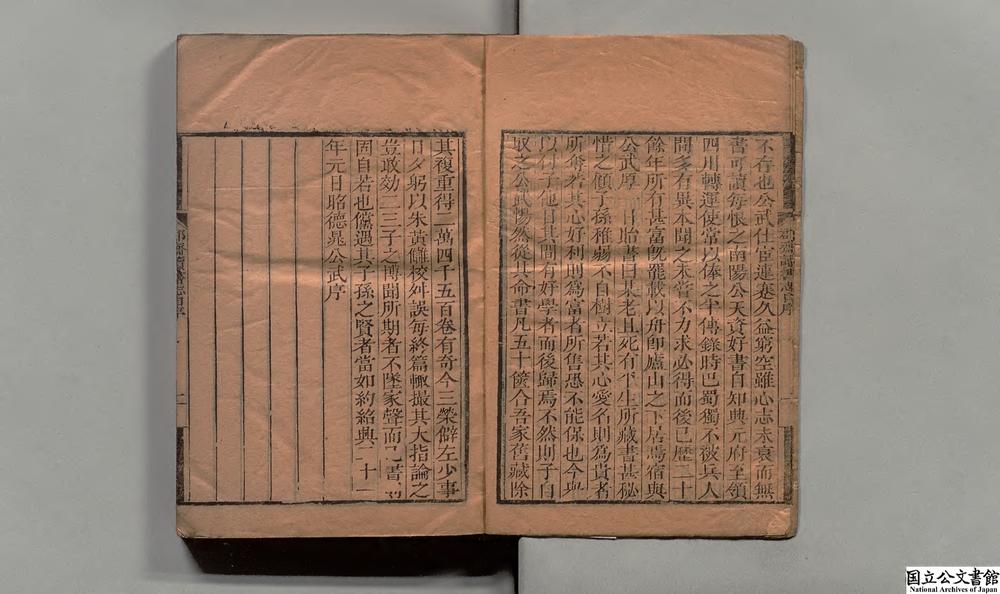 不存也公武仕宦連蹇久益窮空雖心志未衰而無
書可讀每恨之南陽公天資好書自知興元府至領
四川轉運使常以俸之半傳錄時巴蜀獨不被兵人
間多有異本聞之未嘗不力求必得而後已歷二十
餘年所有甚富旣罷載以舟卽廬山之下居焉宿與
公武厚一日貽書曰某老且死有平生所藏書甚秘
惜之顧子孫稚弱不自樹立若其心愛名則爲貴者
所奪若其心好利則爲富者所售恐不能保也今舉
以付子他日其間有好學者而後歸焉不然則子自
取之公武惕然從其命書凡五十篋合吾家舊藏除
郡齋讀書志自序
其複重得二萬四千五百卷有奇今三榮僻左少事
日夕躬以朱黃讎校舛誤每終篇輒撮其大指論之
豈敢效二三子之博聞所期者不墜家聲而已書
固自若也儻遇其子孫之賢者當如約紹興二十一
年元日昭德晁公武序
郡齋讀書志自序
二
国立公文書館
National Archives of Japan